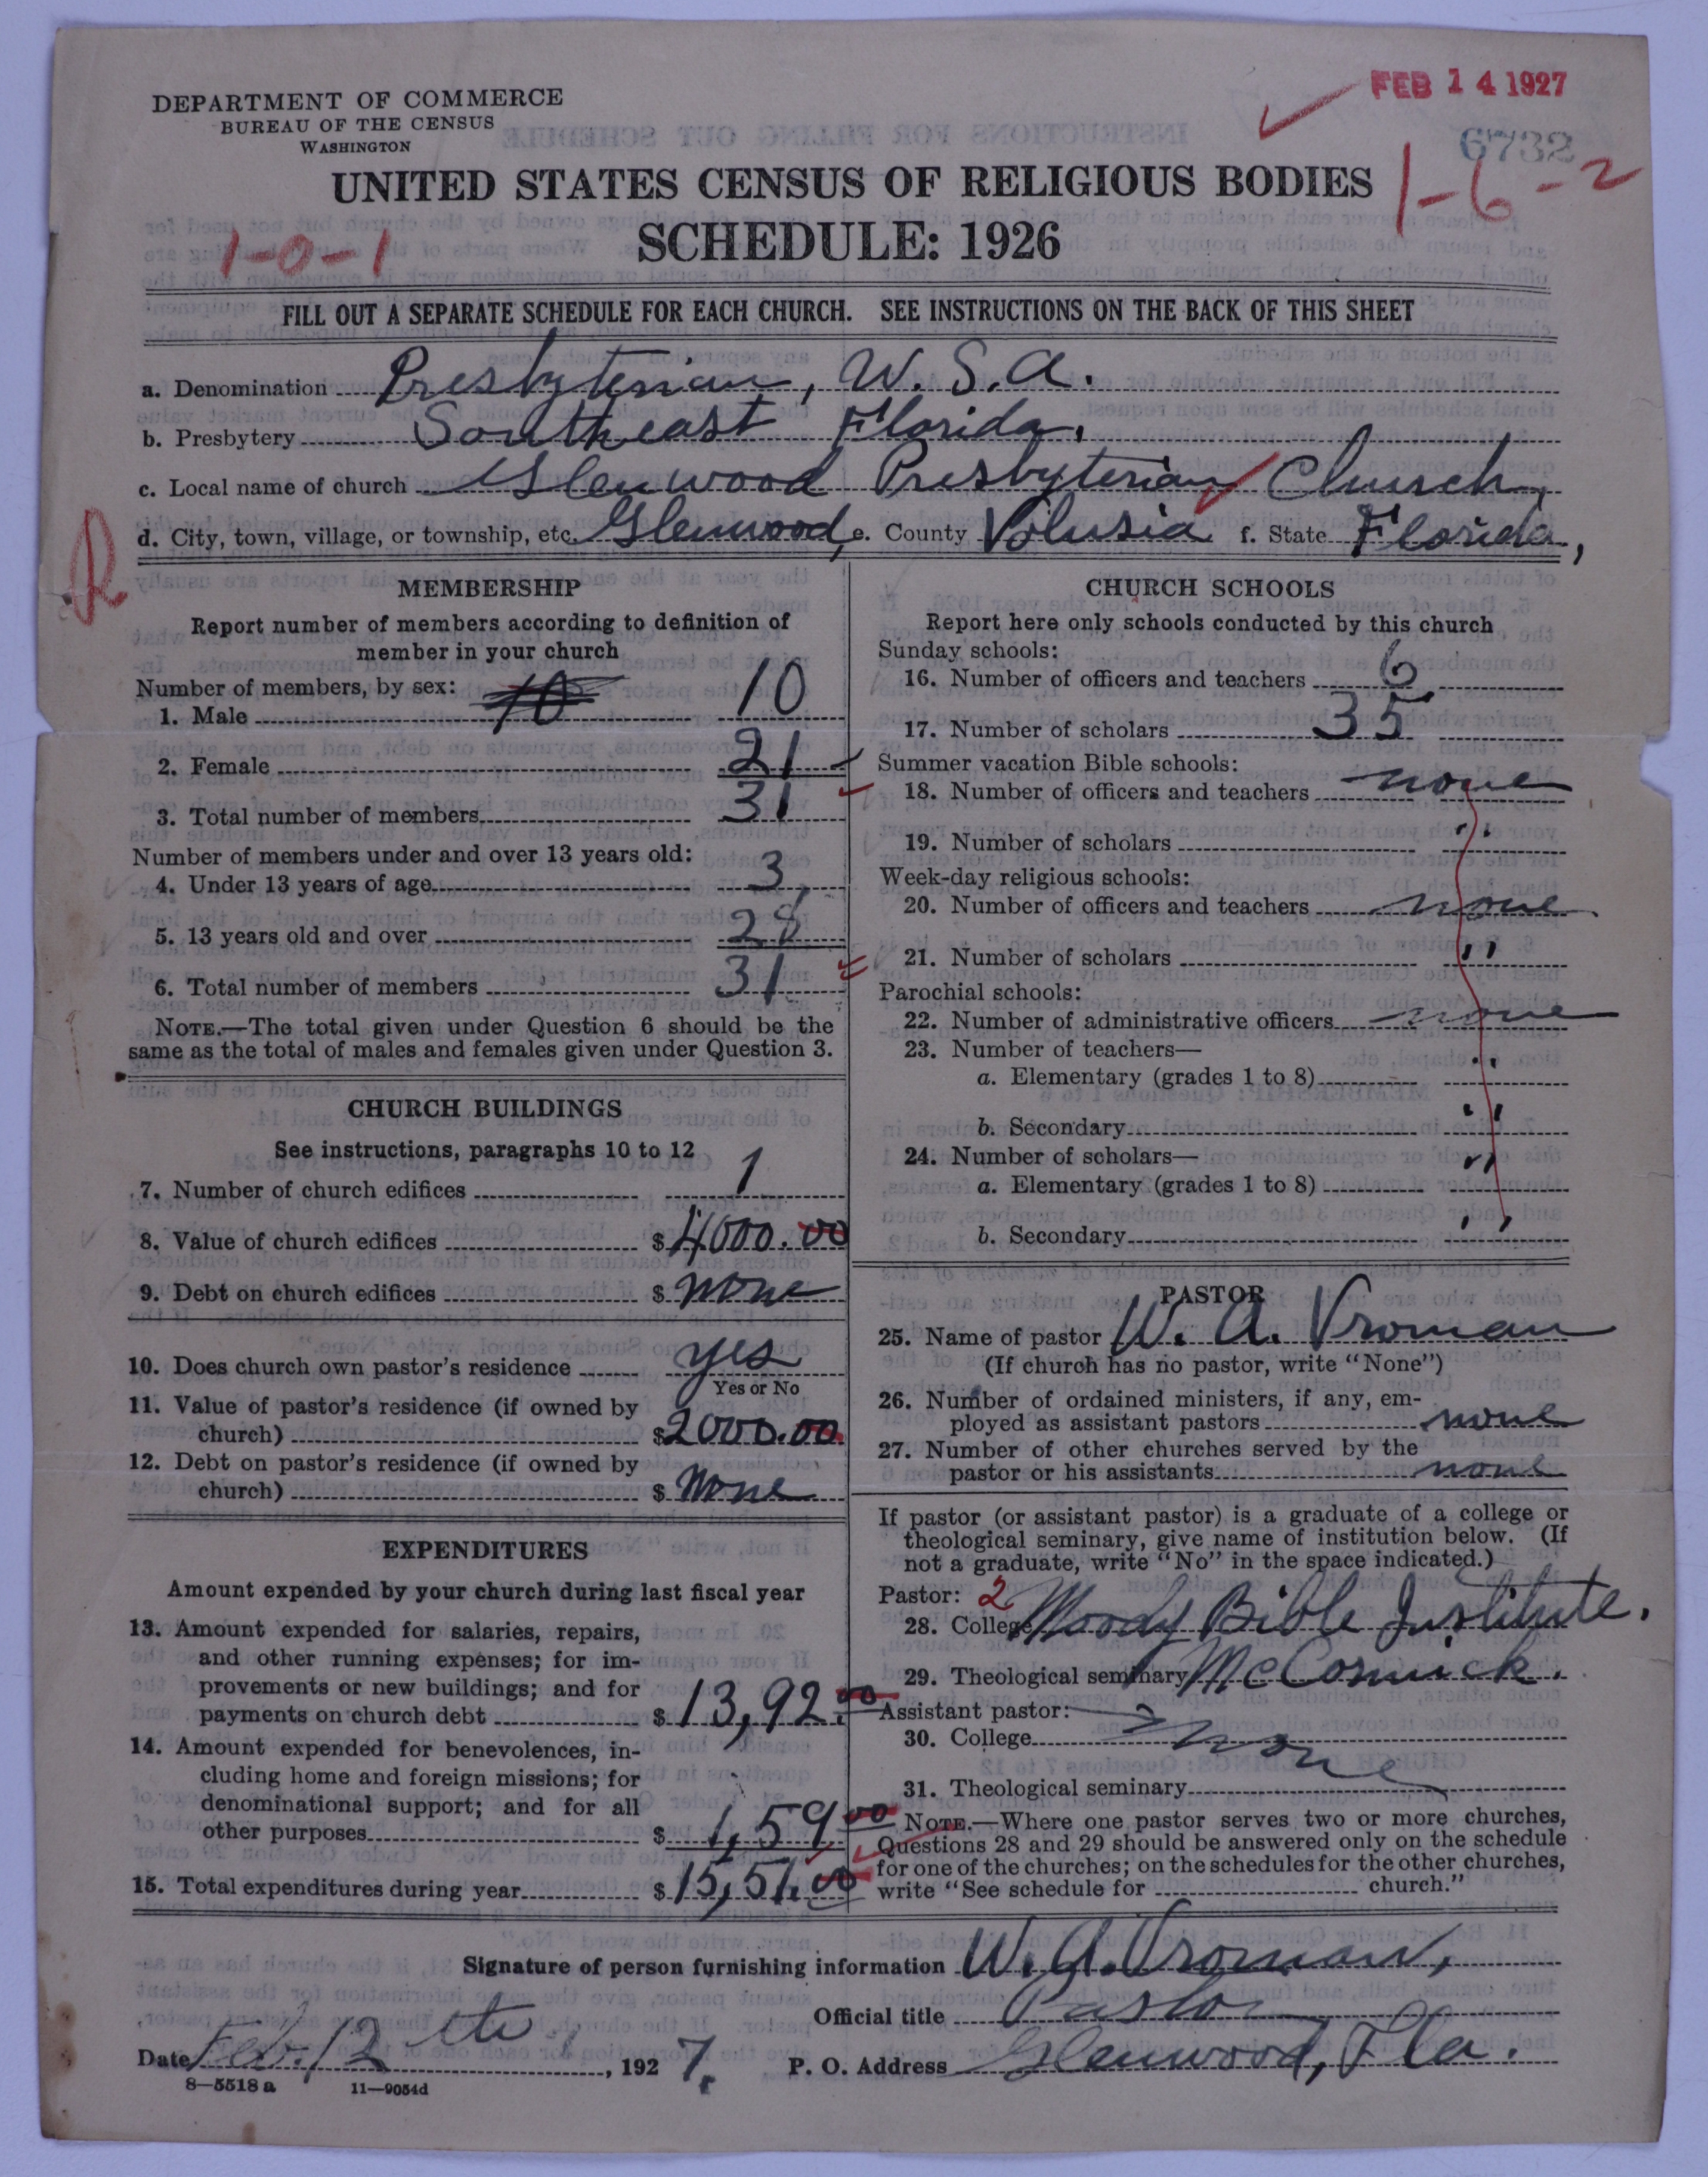 DEPARTMENT OF COMMERCE
BUREAU OF THE CENSUS
WASHINGTON
FEB 14 1927
6732
1-6-2
UNITED STATES CENSUS OF RELIGIOUS BODIES
SCHEDULE: 1926
1-0-1
FILL OUT A SEPARATE SCHEDULE FOR EACH CHURCH. SEE INSTRUCTIONS ON THE BACK OF THIS SHEET
a. Denomination Presbyterian, U.S.A.
b. Presbytery Southeast Florida,
c. Local name of church Glenwood Presbyterian Church,
d. City, town, village, or township, etc. Glenwood, e. County Volusia f. State Florida,
R
MEMBERSHIP
Report number of members according to definition of
member in your church
Number of members, by sex:
1. Male 10 10
2. Female 21
3. Total number of members 31
Number of members under and over 13 years old:
4. Under 13 years of age 3
5. 13 years old and over 28
6. Total number of members 31
NOTE.—The total given under Question 6 should be the
same as the total of males and females given under Question 3.
CHURCH BUILDINGS
See instructions, paragraphs 10 to 12
7. Number of church edifices 1
8. Value of church edifices $4000.00
9. Debt on church edifices $ none
10. Does church own pastor's residence yes
Yes or No
11. Value of pastor's residence (if owned by
church) $2000.00
12. Debt on pastor's residence (if owned by
church) $ None
EXPENDITURES
Amount expended by your church during last fiscal year
13. Amount expended for salaries, repairs,
and other running expenses; for im-
provements or new buildings; and for
payments on church debt $ 13,92.00
14. Amount expended for benevolences, in-
cluding home and foreign missions; for
denominational support; and for all
other purposes $ 1,59 00
15. Total expenditures during year $ 15,51.00
CHURCH SCHOOLS
Report here only schools conducted by this church
Sunday schools:
16. Number of officers and teachers 6
17. Number of scholars 35
Summer vacation Bible schools:
18. Number of officers and teachers none
19. Number of scholars "
Week-day religious schools:
20. Number of officers and teachers none
21. Number of scholars "
Parochial schools:
22. Number of administrative officers none
23. Number of teachers—
a. Elementary (grades 1 to 8) "
b. Secondary "
24. Number of scholars—
a. Elementary (grades 1 to 8) "
b. Secondary "
PASTOR
25. Name of pastor W. A. Vroman
(If church has no pastor, write "None")
26. Number of ordained ministers, if any, em-
ployed as assistant pastors none
27. Number of other churches served by the
pastor or his assistants none
If pastor (or assistant pastor) is a graduate of a college or
theological seminary, give name of institution below. (If
not a graduate, write "No" in the space indicated.)
Pastor: 2
28. College Moody Bible Institute.
29. Theological seminary McCormick.
Assistant pastor:
30. College none
31. Theological seminary
NOTE.—Where one pastor serves two or more churches,
Questions 28 and 29 should be answered only on the schedule
for one of the churches; on the schedules for the other churches,
write "See schedule for church."
Signature of person furnishing information W. A. Vroman,
Official title Pastor
Date Feb. 12th, 1927. P. O. Address Glenwood, Fla.
8—5518 a 11—9054d